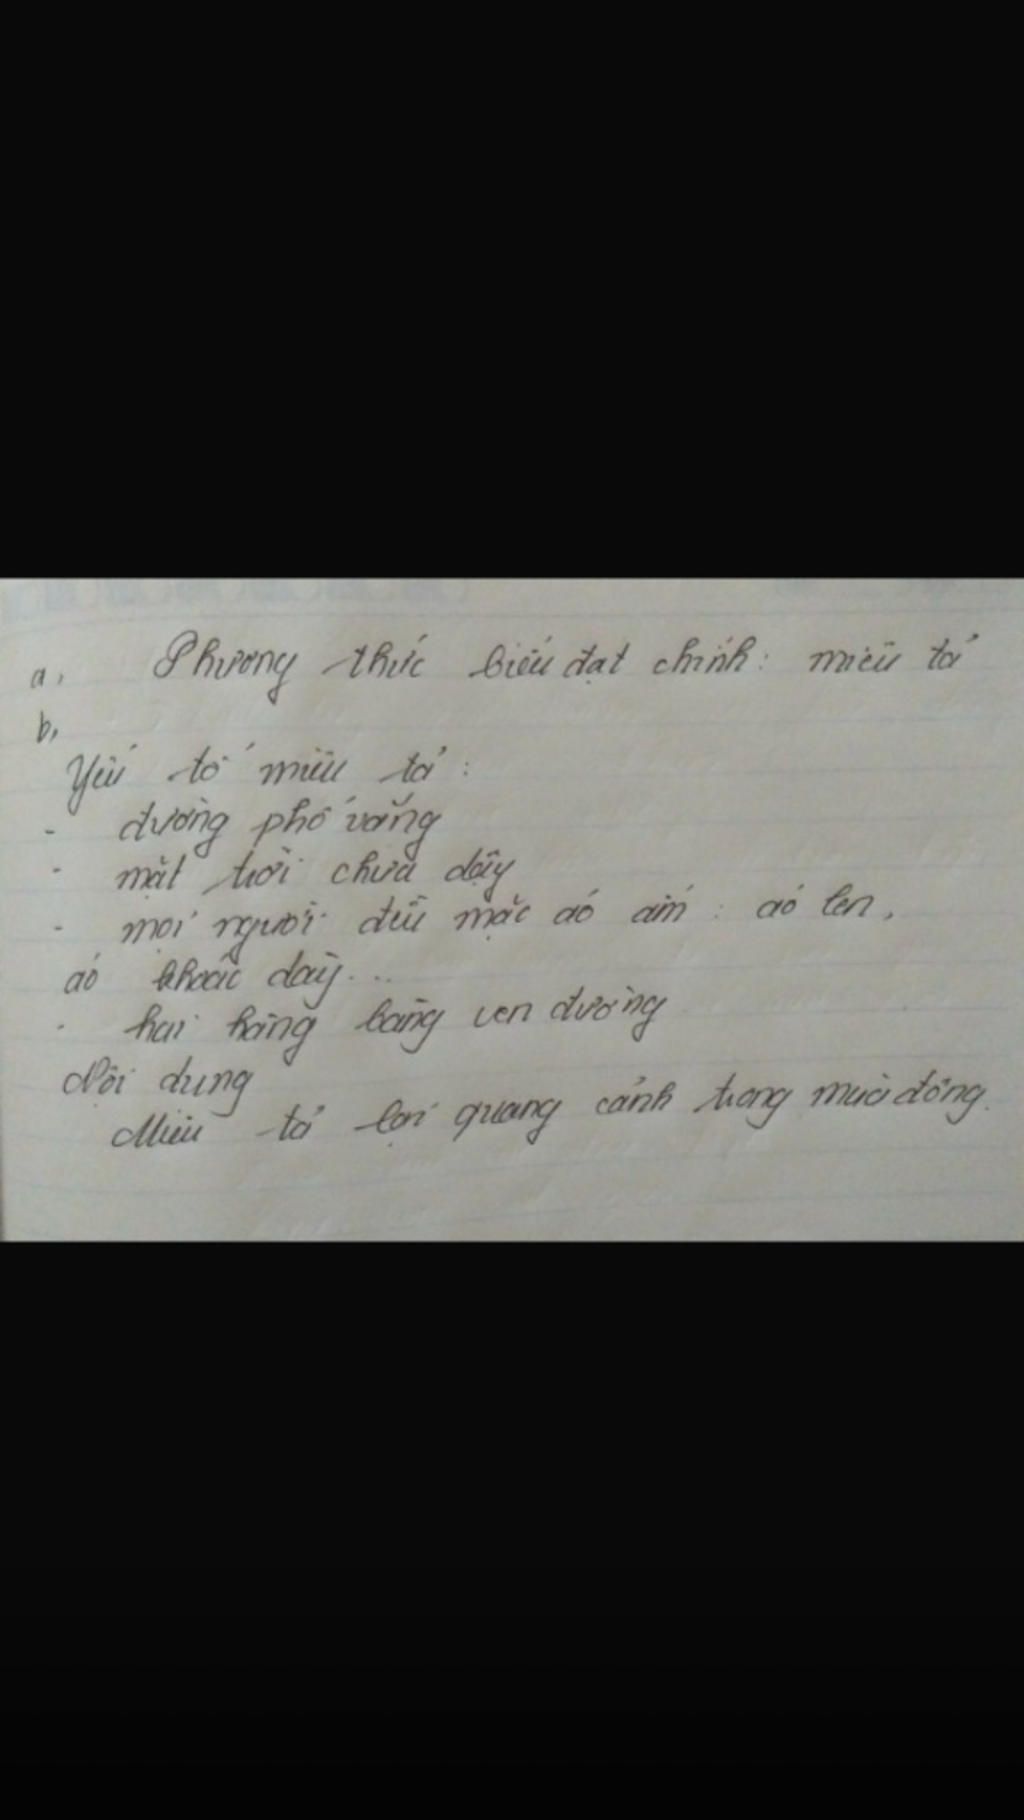 a, Phương thức biểu đạt chính: miêu tả
b,
Yếu tố miêu tả:
- đường phố vắng
- mặt trời chưa dậy
- mọi người đều mặc áo ấm: áo len,
áo khoác dày...
- hai hàng bàng ven đường
Nội dung
Miêu tả lại quang cảnh trong mùa đông.